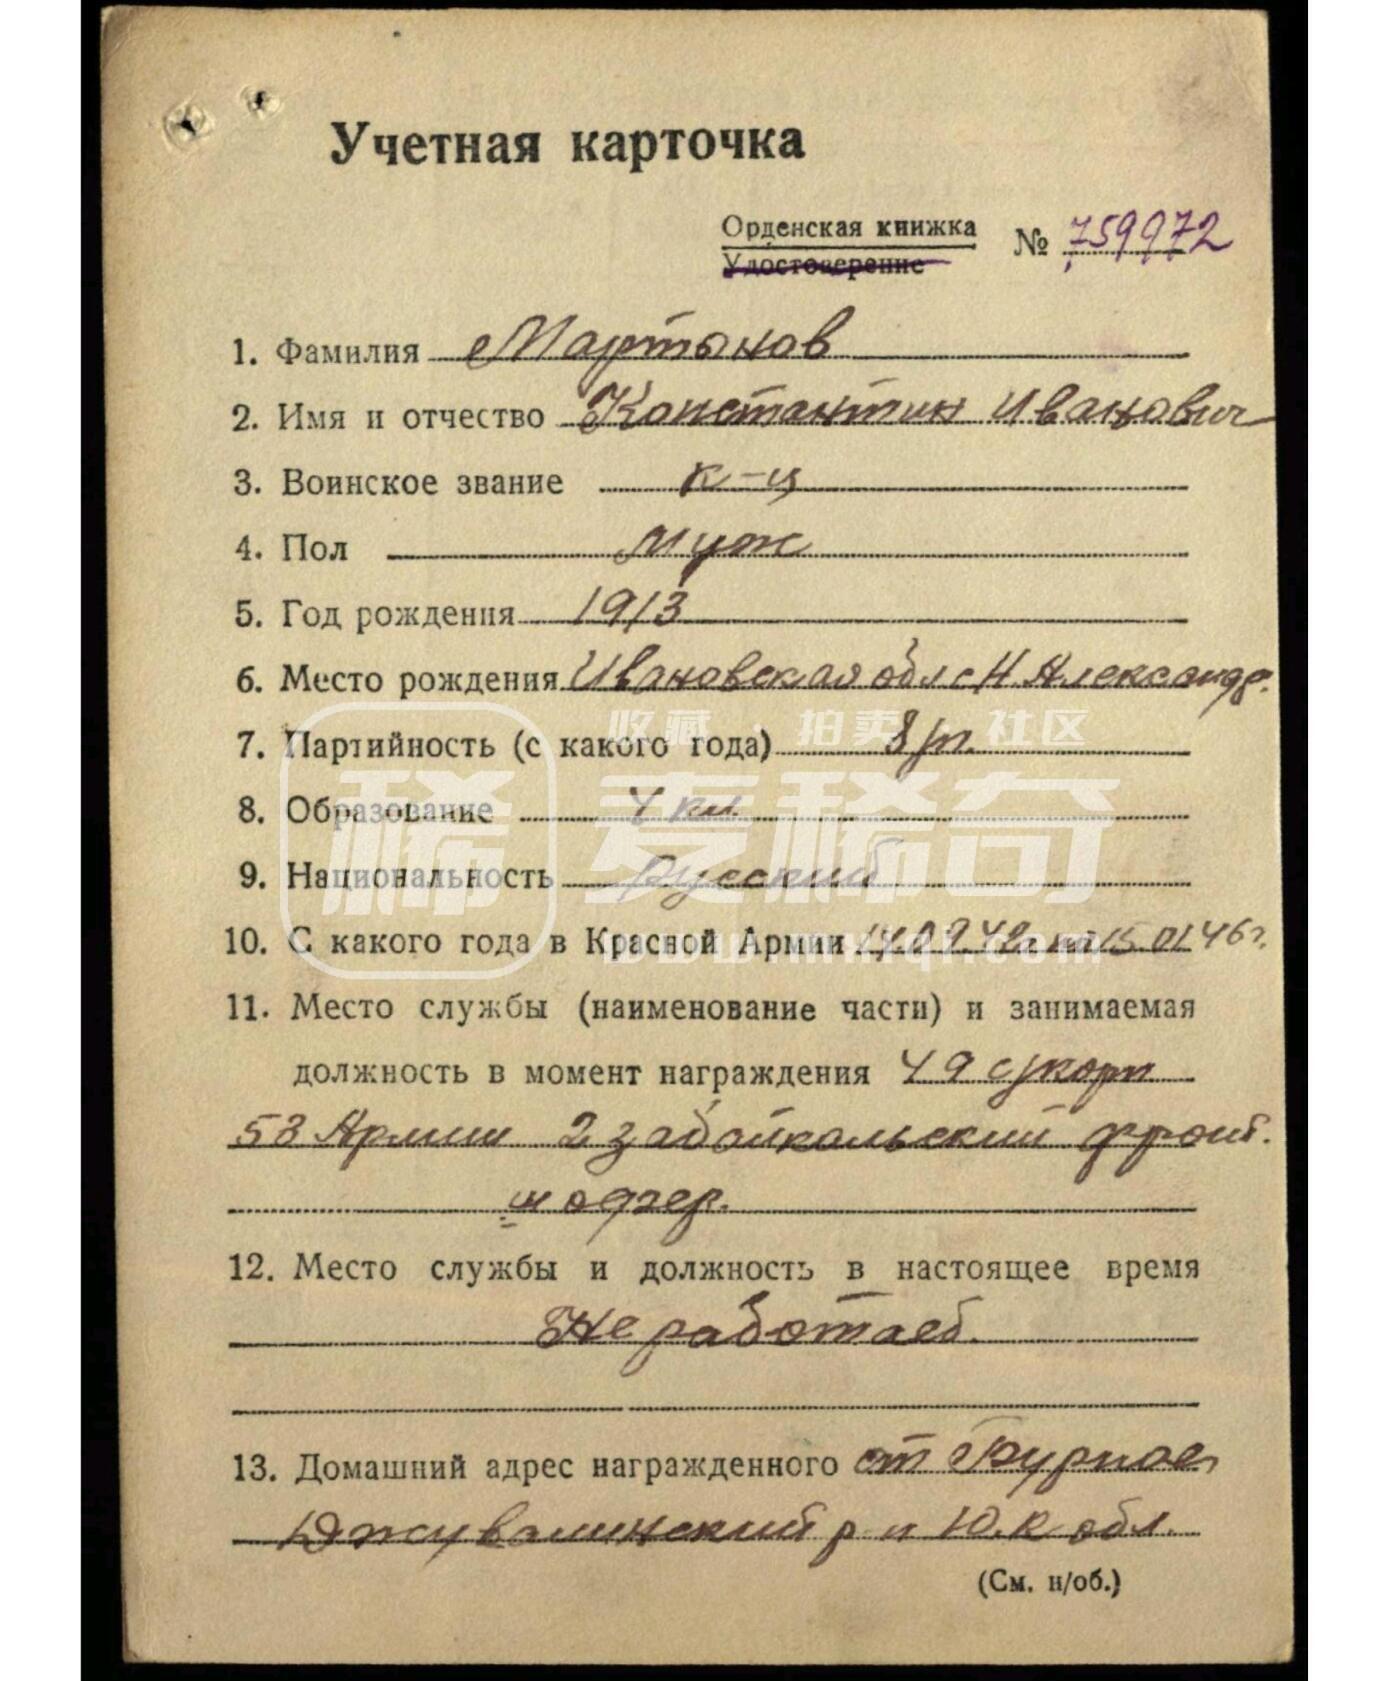 Учетная карточка
Орденская книжка
Удостоверение
№ 759972
1. Фамилия Мартынов
2. Имя и отчество Константин Иванович
3. Воинское звание к-ц
4. Пол муж
5. Год рождения 1913
6. Место рождения Ивановская обл с Н. Александр.
收藏 · 拍卖 · 社区
7. Партийность (с какого года) б/п.
稀 麦稀奇
8. Образование 4 кл.
9. Национальность Русский
10. С какого года в Красной Армии 46г.
www.mxiqi.com
11. Место службы (наименование части) и занимаемая
должность в момент награждения 49 с/корп
53 Армии 2 забайкальский фронт.
12. Место службы и должность в настоящее время
Не работает.
13. Домашний адрес награжденного ст Бурное,
Джувалинский р н Ю.К обл.
(См. н/об.)